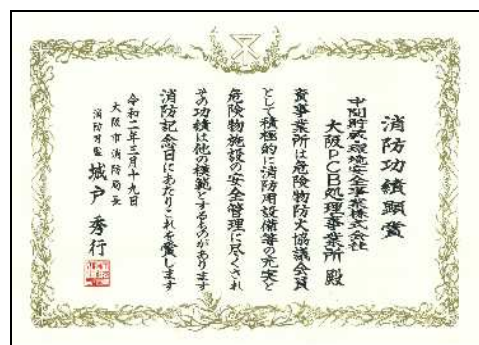 消防功績顕賞
中間貯蔵・環境安全事業株式会社
大阪PCB処理事業所 殿
貴事業所は危険物防火協議会員
として積極的に消防用設備等の充実と
危険物施設の安全管理に尽くされ
その功績は他の模範とするものがあります
消防記念日にあたりこれを賞します
令和二年三月十九日
大阪市消防局長
消防司監 城戸秀行